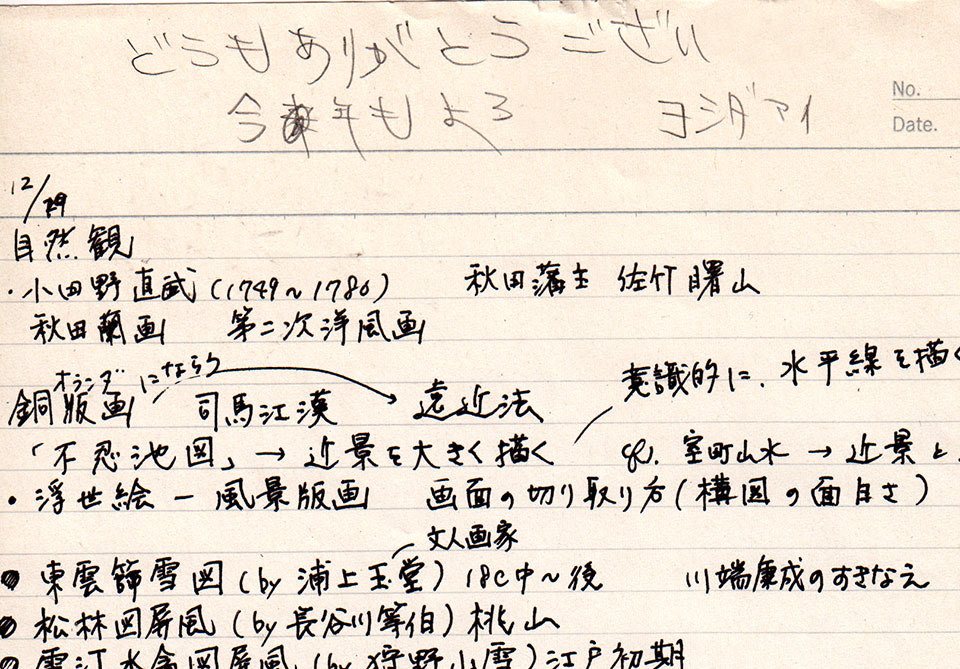 どうもありがとうござい
今年もよろ ヨシダアイ
No.
Date.
12/29
自然観
・小田野直武(1749~1780) 秋田藩主 佐竹曙山
秋田蘭画 第二次洋風画
オランダ にならう
意識的に、水平線を描く
銅版画 司馬江漢 遠近法
「不忍池図」→近景を大きく描く cf. 室町山水→近景と
・浮世絵ー風景版画 画面の切り取り方(構図の面白さ)
文人画家
●東雲篩雪図(by 浦上玉堂)18C中~後 川端康成のすきなえ
●松林図屏風(by 長谷川等伯)桃山
●雪汀水禽図屏風(by 狩野山雪)江戸初期